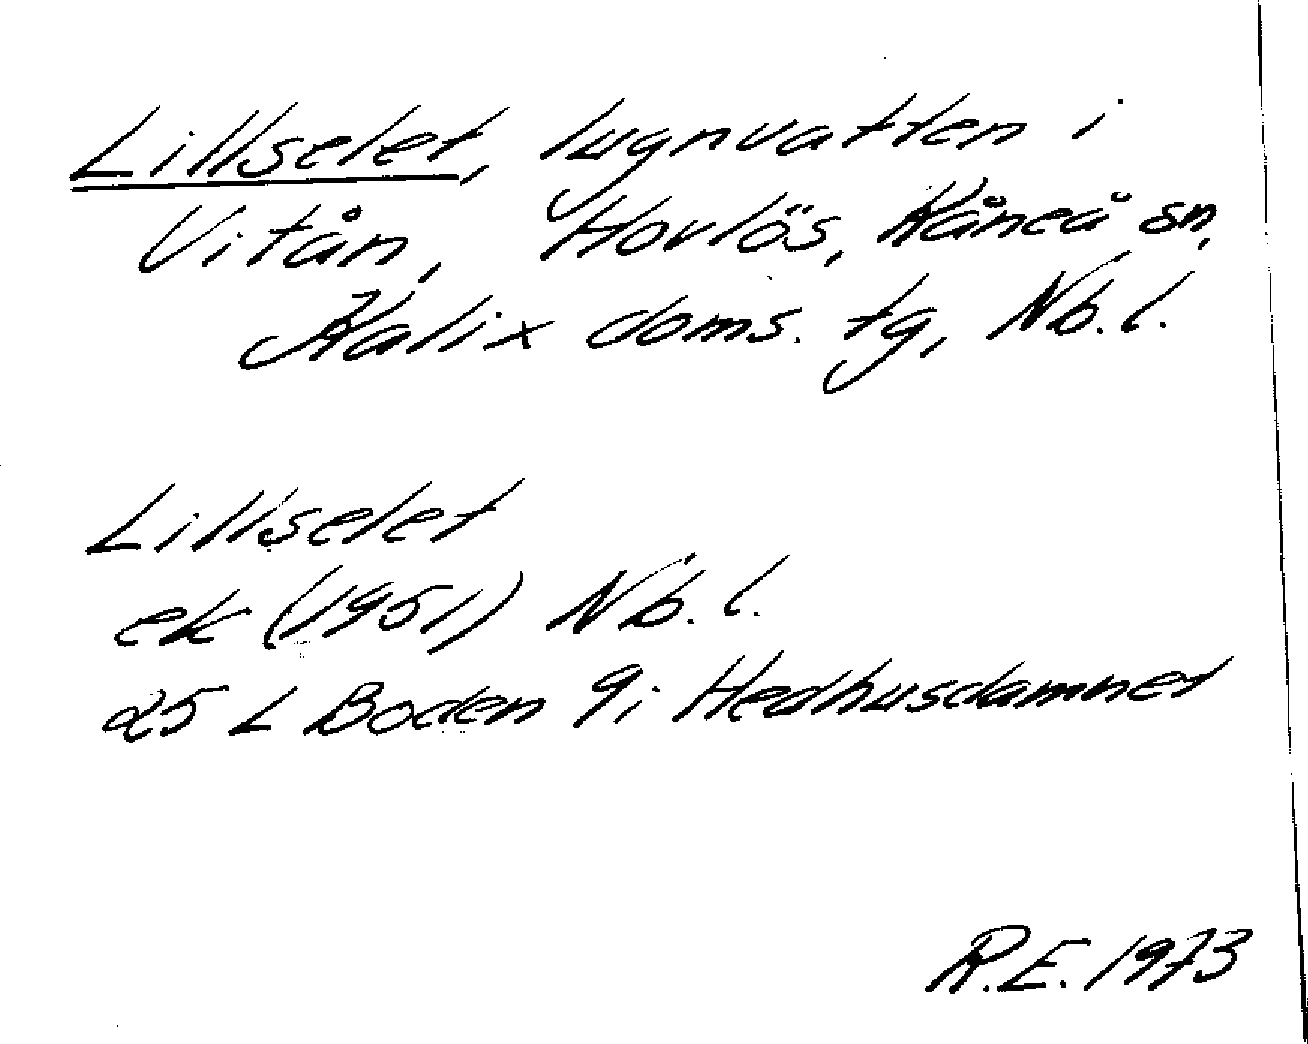 Lillselet, lugnvatten i
Vitån, Hovlös, Råneå sn,
Kalix doms. tg, Nb. l.
Lillselet
ek (1951) Nb. l.
25 L Boden 9i Hedhusdamnet
R.E. 1973